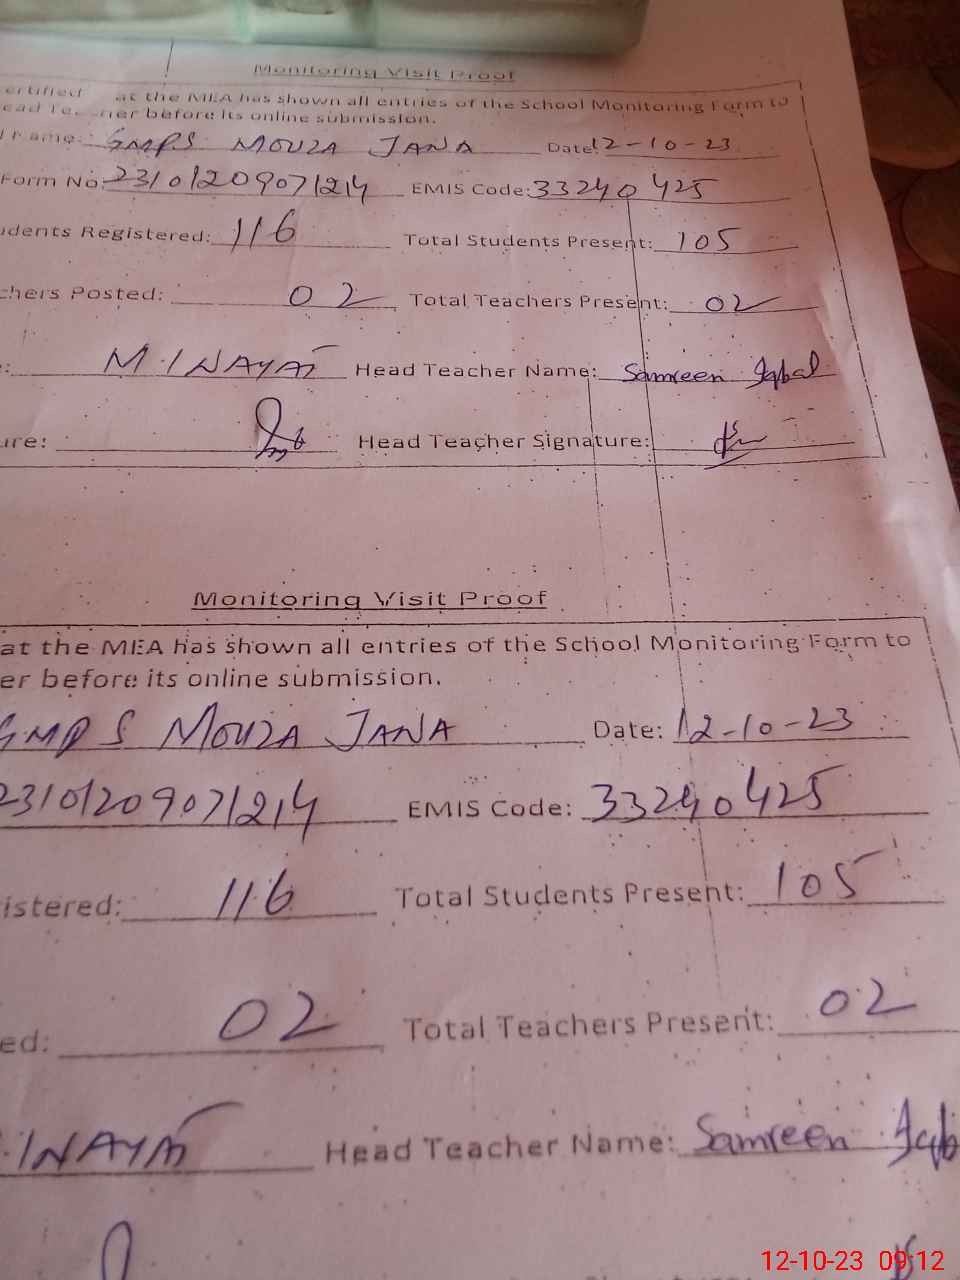 Monitoring Visit Proof
ertified at the MEA has shown all entries of the School Monitoring Form to
ead Te her before its online submission.
Name: GMPS MOUZA JANA Date: 12-10-23
Form No: 23101209071214 EMIS Code: 33240425
udents Registered: 116 Total Students Present: 105
chers Posted: 02 Total Teachers Present: 02
: M. INAYAT Head Teacher Name: Samreen Iqbal
ure: Head Teacher Signature:
Monitoring Visit Proof
at the MEA has shown all entries of the School Monitoring Form to
er before its online submission.
GMPS MOUZA JANA Date: 12-10-23
23101209071214 EMIS Code: 33240425
istered: 116 Total Students Present: 105
ed: 02 Total Teachers Present: 02
. INAYAT Head Teacher Name: Samreen Iqb
12-10-23 09:12